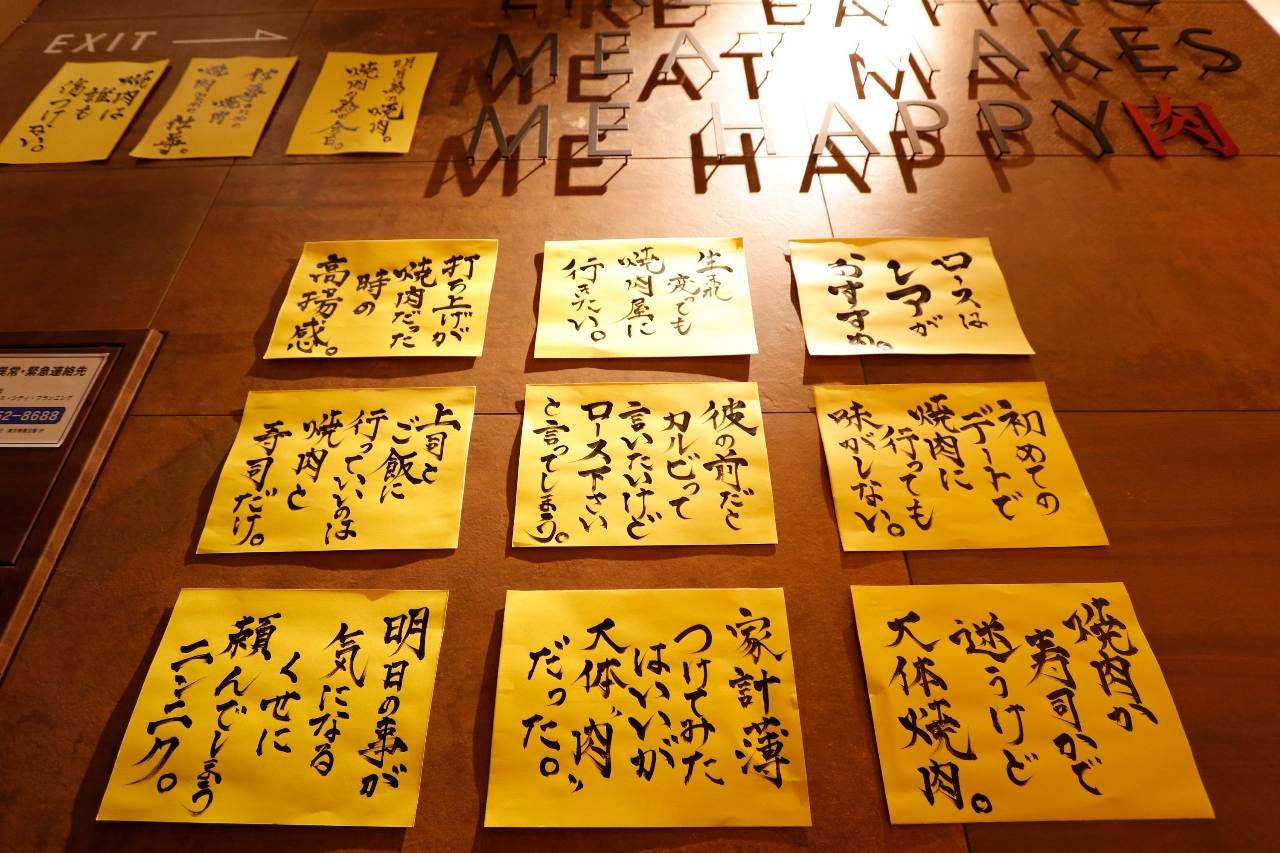 EXIT
EATING
MEAT MAKES
ME HAPPY肉
明日為の焼肉。
焼肉為の今日。
焼肉は
誰も
傷つけない。
打ち上げが
焼肉だった
時の
高揚感。
生まれ
変っても
焼肉屋に
行きたい。
ロースは
レアが
おすすめ。
上司と
ご飯に
行っていいのは
焼肉と
寿司だけ。
彼の前だと
カルビって
言いたいけど
ロース下さい
と言ってしまう。
初めての
デートで
焼肉に
行っても
味がしない。
明日の事が
気になる
くせに
頼んでしまう
ニンニク。
家計簿
つけてみた
はいいが
大体〃肉〃
だった。
焼肉か
寿司かで
迷うけど
大体焼肉。
異常・緊急連絡先
52-8688